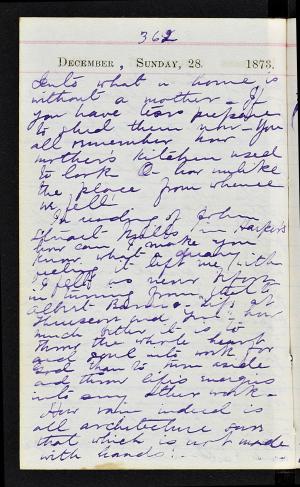 362
DECEMBER, SUNDAY, 28. 1873.
into what a home is
without a mother - If
you have tears prepare
to shed them now - you
all remember how
mothers kitchen used
to look O how unlike
the place from whence
we fell!
In reading of John
Stuart Mills, in Harper's
how can I make you
know what a dreary
feeling it left me with
I felt as never before
in turning from that to
Albert Barnes's Life at
Threescore and Ten, how
much better it is to
throw the whole heart
and soul into work for
God than to turn aside
and throw energies
into any other work -
How vain indeed is
all architecture save
that which is not made
with hands! -